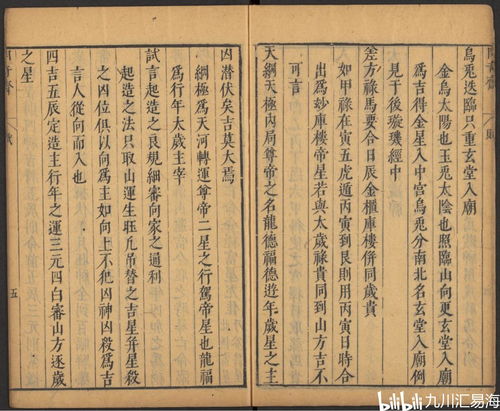 烏兎迭臨只重玄堂入廟
金烏太陽也玉兎太陰也照臨山向更玄堂入廟
爲吉得金星入中宫烏兎分南北名玄堂入廟例
見于後璇璣經中
差方祿馬要合日辰金櫃庫樓併同歲貴
如甲祿在寅五虎遁丙寅到艮則用丙寅日時合
出爲妙庫樓帝星若與太歲祿貴同到山方吉不
可言
天綱天極内局尊帝之名龍德福德逰年歲星之主
凶潛伏矣吉莫大焉
綱極爲天河轉運尊帝二星之行駕帝星也龍福
爲行年太歲主宰
試言起造之良規細審向家之過利
起造之法只取山運生旺凢吊替之吉星并星殺
之凶位俱以向爲主如向上不犯凶神凶殺爲吉
言人從向而入也
四吉五辰定造主行年之運三元四白審山方逐歲
之星
五
bilibili 九川汇易海